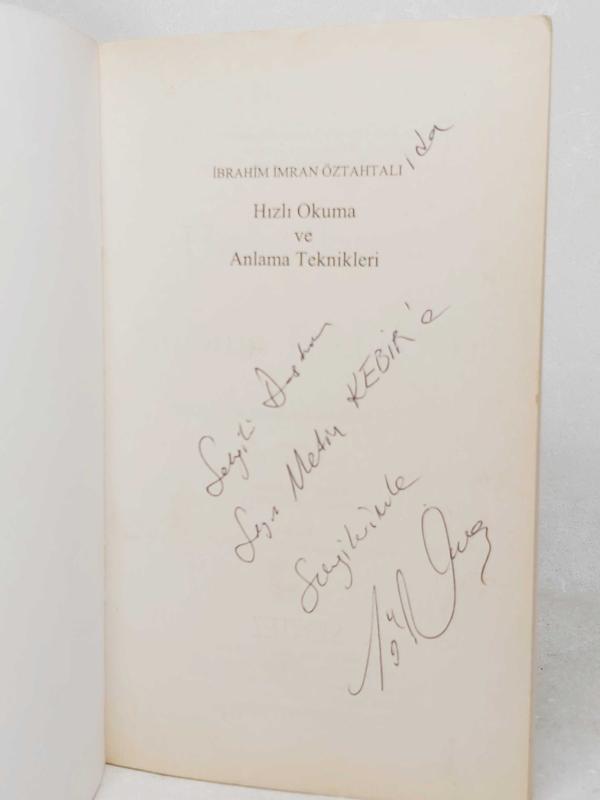 İBRAHİM İMRAN ÖZTAHTALI'da
Hızlı Okuma
ve
Anlama Teknikleri
Sevgili Başkan
Sayın Metin KEBİR'e
Sevgilerimle